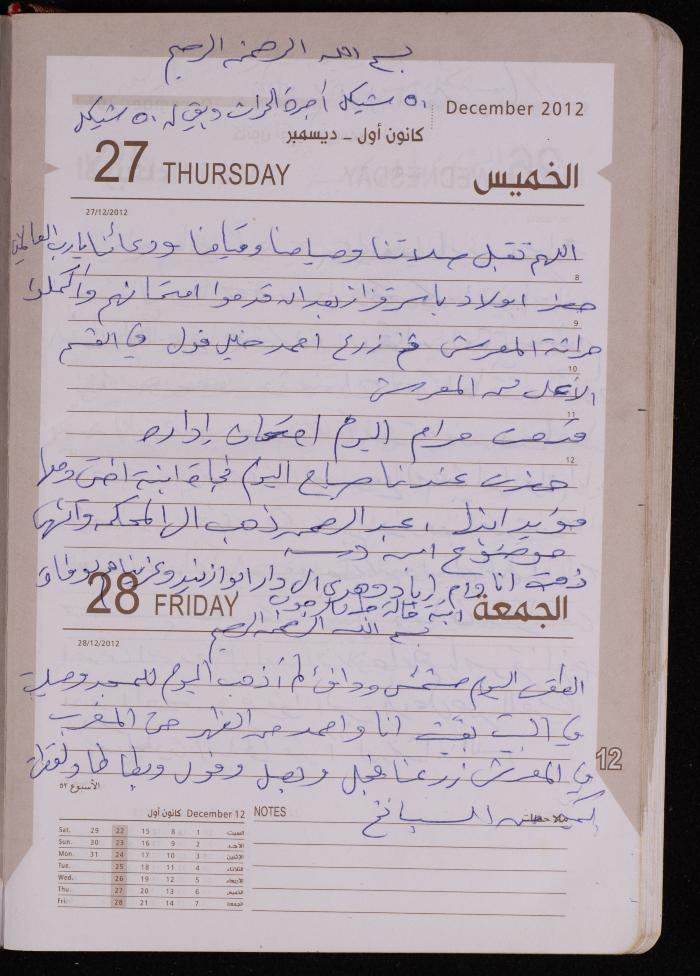 بسم الله الرحمن الرحيم
٥٠ شيكل أجرة الحراث وبقي له ٥٠ شيكل
December 2012
كانون أول - ديسمبر
27 THURSDAY الخميس
27/12/2012
اللهم تقبل صلاتنا وصيامنا وقيامنا ودعائنا يا رب العالمين
8
حضر الاولاد بعد ان قدموا امتحانهم وأكملوا
9
حراثة المفرش احمد فول في القسم
10
الأعلى من المفرش
11
قدمت مرام اليوم امتحان إدارة
12
حضرت عندنا صباح اليوم نجاة ابنة اختي
مؤيد عبد الرحمن ذهب الى المحكمة
موضوع
ذهبت انا وام زياد الى دار
28 FRIDAY الجمعة
ابنة خالة
28/12/2012
بسم الله الرحمن الرحيم
الطقس اليوم مشمس ودافئ لم أذهب اليوم للمسجد وصليت
في البيت بقيت انا واحمد من الظهر حتى المغرب
في المفرش زرعنا فجل وبصل وفول وبطاطا ولقطنا
السبانخ
12
الأسبوع ٥٢
December 12 كانون أول
NOTES ملاحظات
Sat. 29 22 15 8 1 السبت
Sun. 30 23 16 9 2 الأحد
Mon. 31 24 17 10 3 الإثنين
Tue. 25 18 11 4 الثلاثاء
Wed. 26 19 12 5 الأربعاء
Thu. 27 20 13 6 الخميس
Fri. 28 21 14 7 الجمعة